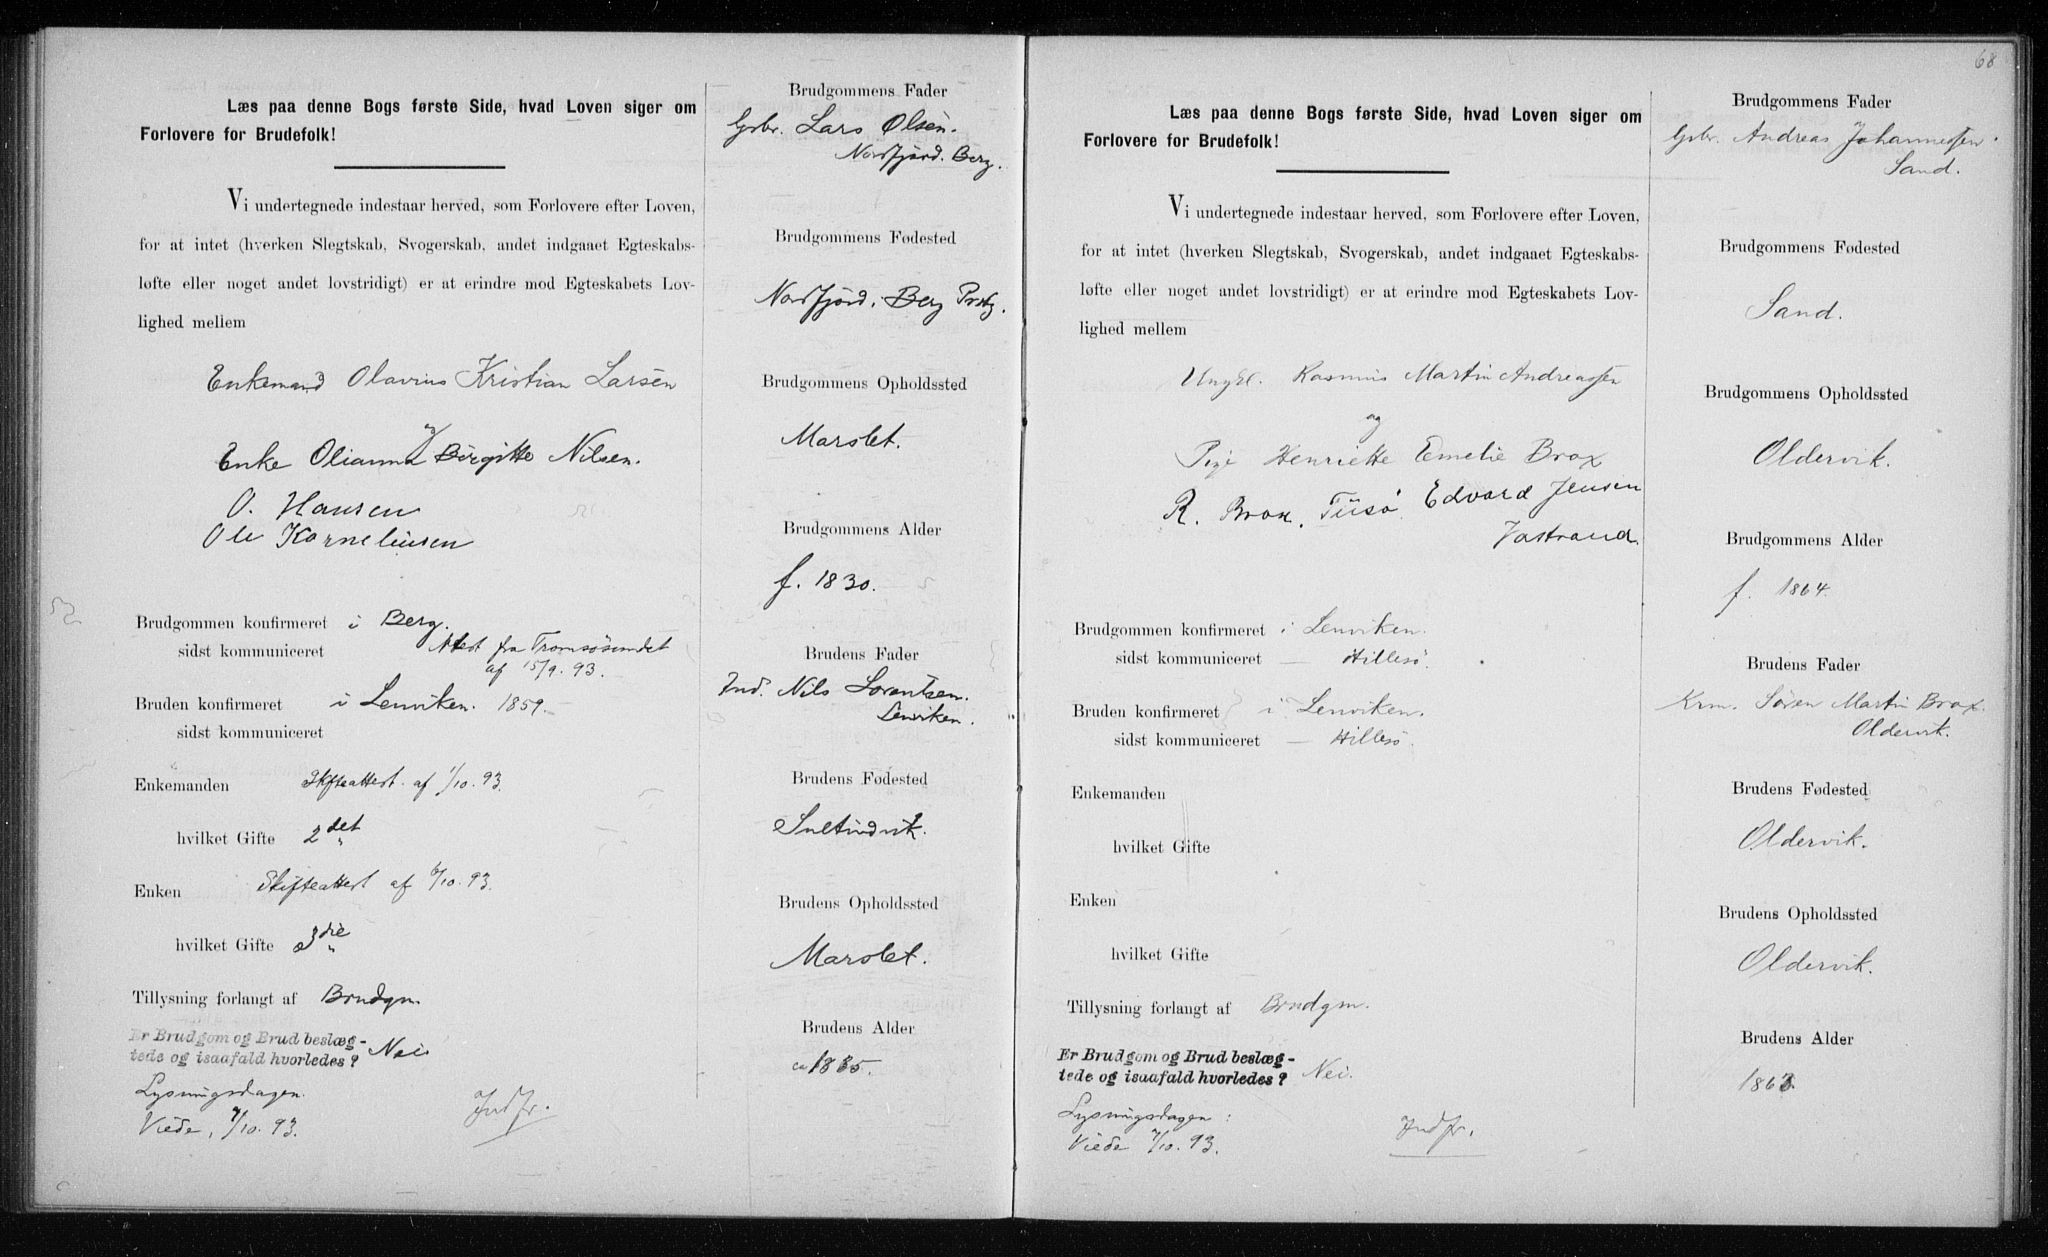 Læs paa denne Bogs første Side, hvad Loven siger om
Forlovere for Brudefolk!
Vi undertegnede indestaar herved, som Forlovere efter Loven,
for at intet (hverken Slegtskab, Svogerskab, andet indgaaet Egteskabs-
løfte eller noget andet lovstridigt) er at erindre mod Egteskabets Lov-
lighed mellem
Enkemand Olavius Kristian Larsen
og
Enke Olianna Birgitte Nilsen.
O. Hansen
Ole Korneliusen
Brudgommen konfirmeret i Berg.
sidst kommuniceret Attest fra Tromsøsundet
af 15/9. 93.
Bruden konfirmeret i Lenviken. 1859.
sidst kommuniceret
Enkemanden Skifteattest af 1/10. 93.
hvilket Gifte 2det
Enken Skifteattest af 6/10. 93.
hvilket Gifte 3die
Tillysning forlangt af Brudgm.
Er Brudgom og Brud beslæg-
tede og isaafald hvorledes? Nei
Lysningsdagen.
Viede, 7/10. 93.
Indfr.
Brudgommens Fader
Gbr. Lars Olsen.
Nordfjord. Berg.
Brudgommens Fødested
Nordfjord. Berg Prstg.
Brudgommens Opholdssted
Marslet.
Brudgommens Alder
f. 1830.
Brudens Fader
Ind. Nils Lorentsen.
Lenviken.
Brudens Fødested
Sultindvik.
Brudens Opholdssted
Marslet.
Brudens Alder
ca 1835.
68
Læs paa denne Bogs første Side, hvad Loven siger om
Forlovere for Brudefolk!
Vi undertegnede indestaar herved, som Forlovere efter Loven,
for at intet (hverken Slegtskab, Svogerskab, andet indgaaet Egteskabs-
løfte eller noget andet lovstridigt) er at erindre mod Egteskabets Lov-
lighed mellem
Ungkl. Rasmus Martin Andreassen
og
Pige Henriette Emelie Brox
R. Brox, Tusø. Edvard Jensen
Jøstrand.
Brudgommen konfirmeret i Lenviken.
sidst kommuniceret — Hillesø.
Bruden konfirmeret i Lenviken.
sidst kommuniceret — Hillesø.
Enkemanden
hvilket Gifte
Enken
hvilket Gifte
Tillysning forlangt af Brudgm.
Er Brudgom og Brud beslæg-
tede og isaafald hvorledes? Nei.
Lysningsdagen:
Viede 7/10. 93.
Indfr.
Brudgommens Fader
Gbr. Andreas Johannessen.
Sand.
Brudgommens Fødested
Sand.
Brudgommens Opholdssted
Oldervik.
Brudgommens Alder
f. 1864.
Brudens Fader
Krm. Søren Martin Brox.
Oldervik.
Brudens Fødested
Oldervik.
Brudens Opholdssted
Oldervik.
Brudens Alder
1863.